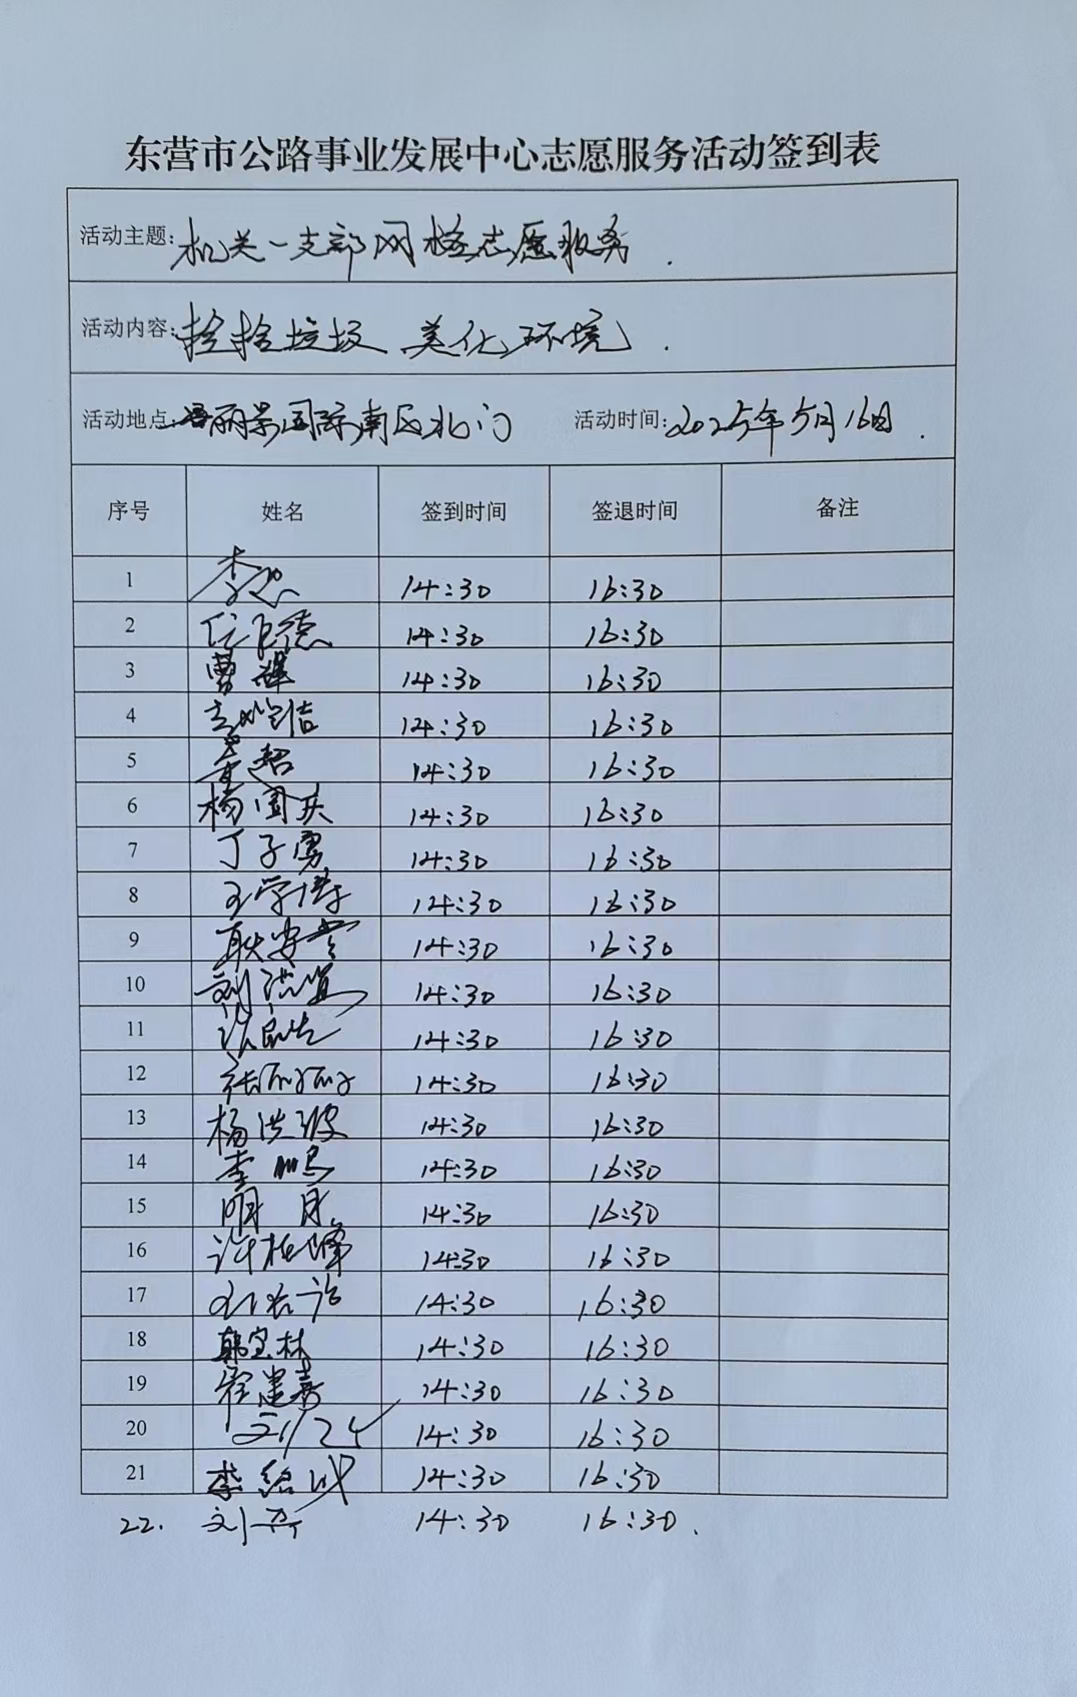 东营市公路事业发展中心志愿服务活动签到表
活动主题: 机关一支部网格志愿服务.
活动内容: 捡拾垃圾 美化环境.
活动地点: 丽景国际南区北门 活动时间: 2025年5月16日.
序号 姓名 签到时间 签退时间 备注
1 李 14:30 16:30
2 任 德 14:30 16:30
3 曹辉 14:30 16:30
4 14:30 16:30
5 超 14:30 16:30
6 杨国庆 14:30 16:30
7 丁子勇 14:30 16:30
8 王学博 14:30 16:30
9 耿安 14:30 16:30
10 刘洪 14:30 16:30
11 14:30 16:30
12 张丽丽 14:30 16:30
13 杨洪波 14:30 16:30
14 李鹏 14:30 16:30
15 明月 14:30 16:30
16 许 峰 14:30 16:30
17 14:30 16:30
18 韩宝林 14:30 16:30
19 建嘉 14:30 16:30
20 14:30 16:30
21 李绍 14:30 16:30
22. 刘 14:30 16:30.